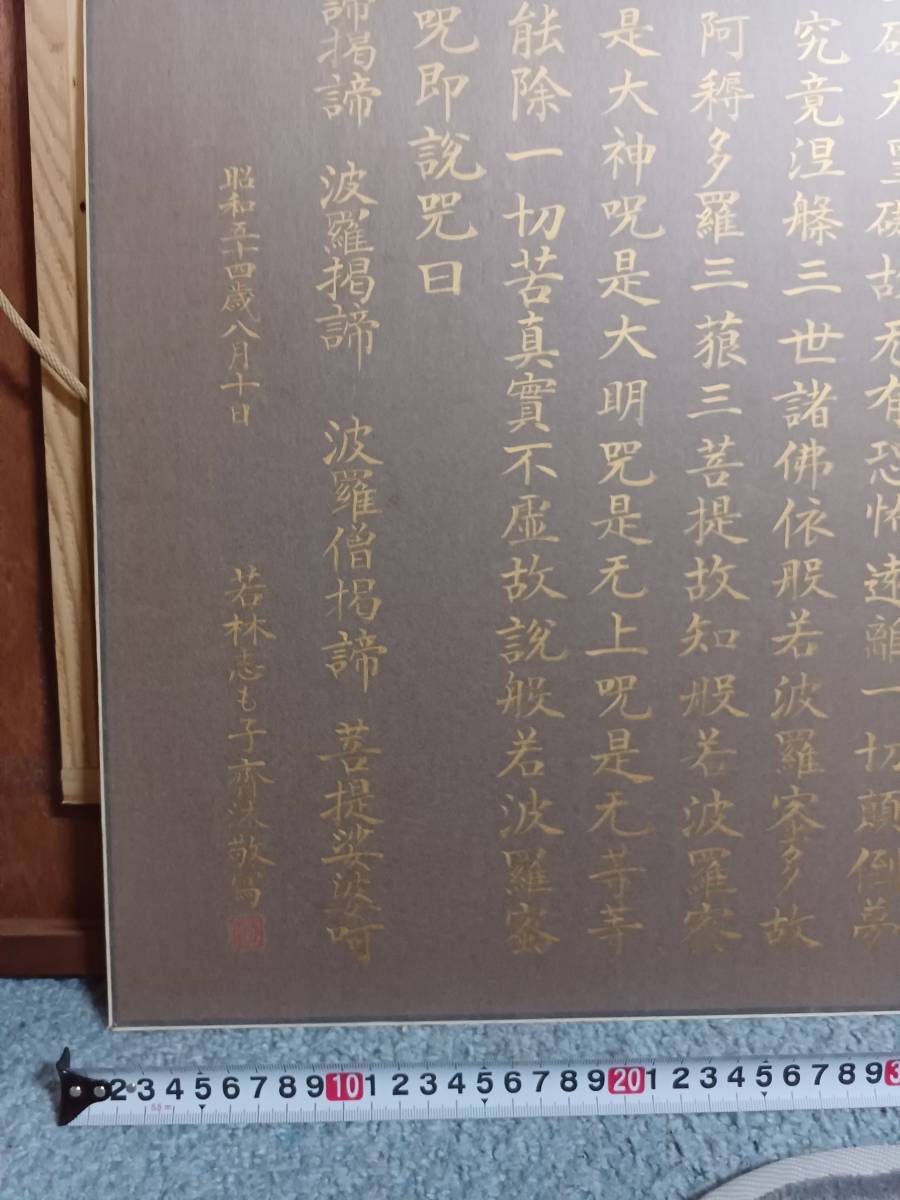 礙无罣礙故无有恐怖遠離一切顛倒夢
究竟涅槃三世諸佛依般若波羅蜜多故
阿耨多羅三藐三菩提故知般若波羅蜜
是大神呪是大明咒是无上呪是无等等
能除一切苦真實不虛故說般若波羅蜜
呪即説咒曰
諦揭諦 波羅揭諦 波羅僧揭諦 菩提娑婆呵
昭和五十四歲八月十日 若林志も子齋沐敬寫
2 3 4 5 6 7 8 9 10 1 2 3 4 5 6 7 8 9 20 1 2 3 4 5 6 7 8 9 3